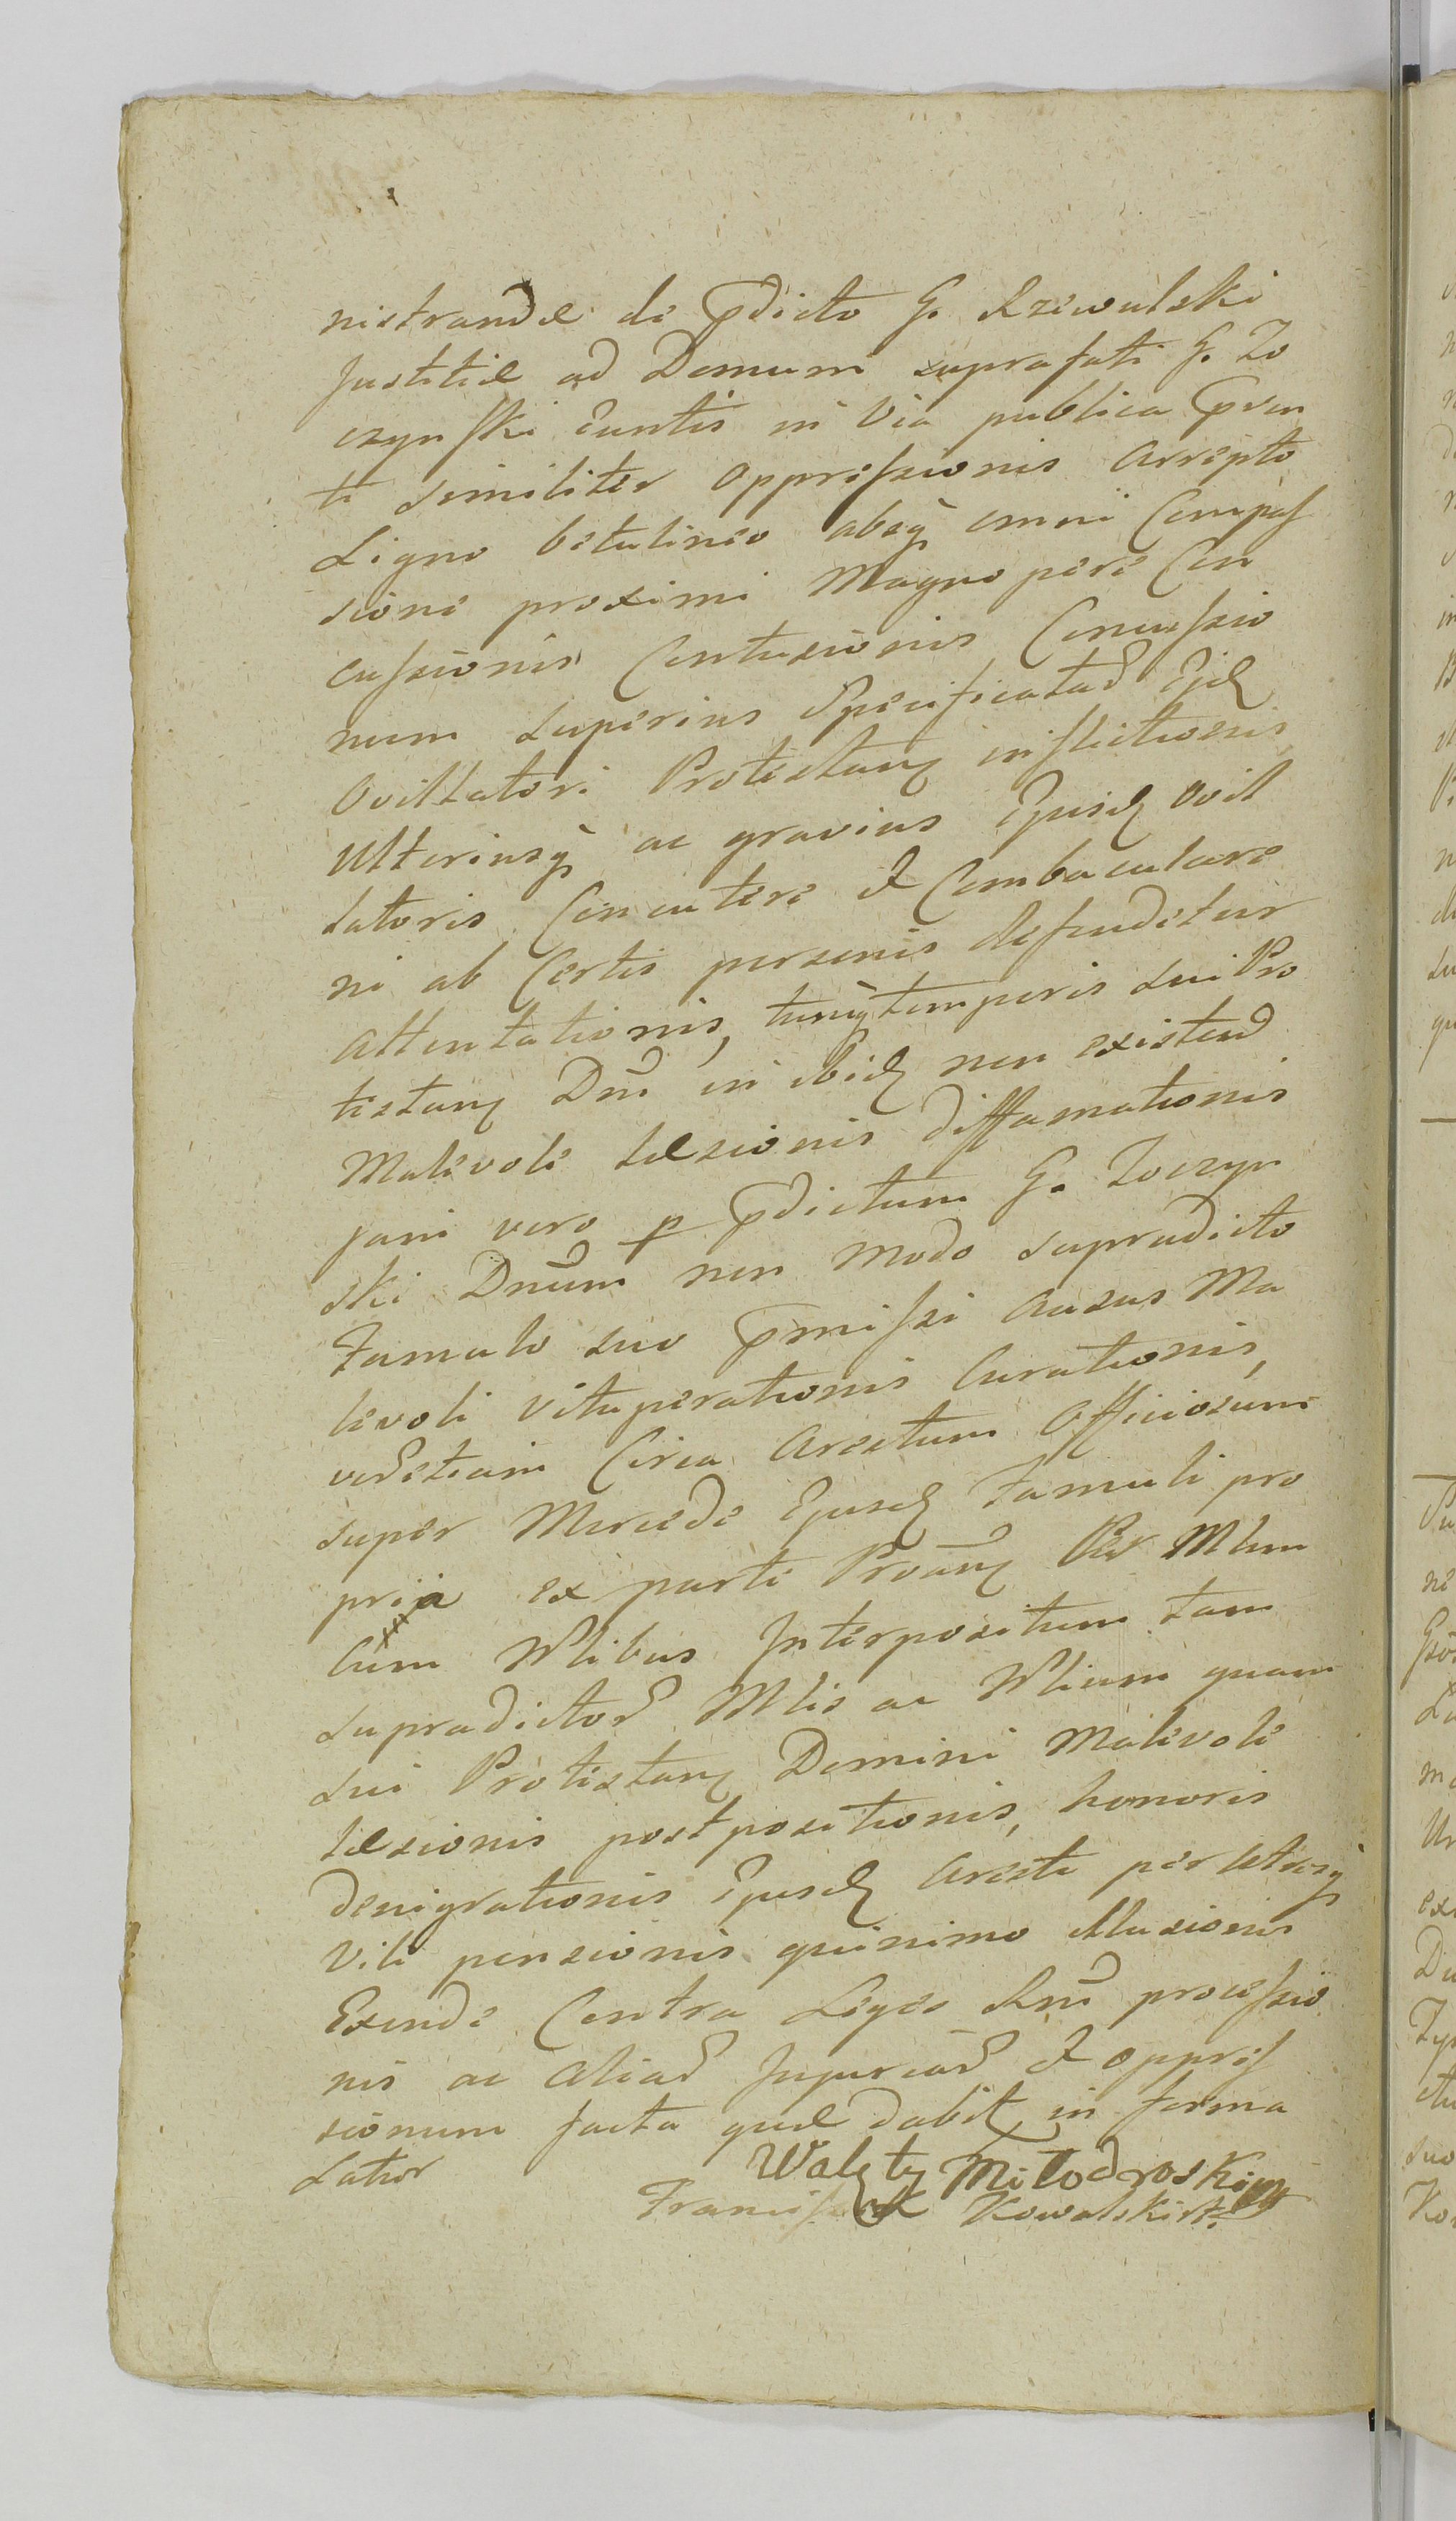 nistrandæ de pdicto G. Rzewulski
Justitiæ ad Domum suprafati G. Zo
czynski Euntis in Via publica pven
te similiter oppressionis arrepto
Ligno betulineo absq omni Compas
sione proximi Magnopere Con
cussionis Contusionis Concussio
num superius Specificatar Ejd
Ovillatori Protestan inflictionis,
Ulteriusq ac gravius Ejusd Ovil
latoris Concutere et Combaculare
ni ab Certis personis defendetur
attentationis, tunq temporis sui Pro
testan Dni in ibid non existend
Malevole læsionis diffamationis
jam vero p pdictum G. Zoczyn
ski Dnum non modo supradicto
Famulo suo pmissi ausus Ma
levoli Vituperationis Curationis,
verū etiam Circa Arestum Officiosum
super Mercede Ejusd Famuli pro
pria ex parte Proan Per Mlem
Cum Nlibus Interpositum tam
supradictor Mlis ac Nlium quam
sui Protestan Domini Malevole
læsionis postpositionis, honoris
denigrationis Ejusd Aresti per utrosq
Vili pensionis quinimo illusionis
Exinde Contra Leges Rni processio
nis ac aliar Injuriar et oppres
sionum facta quæ dabit in forma
Latior
Walęty Miłodroski
Francisek Kowalski